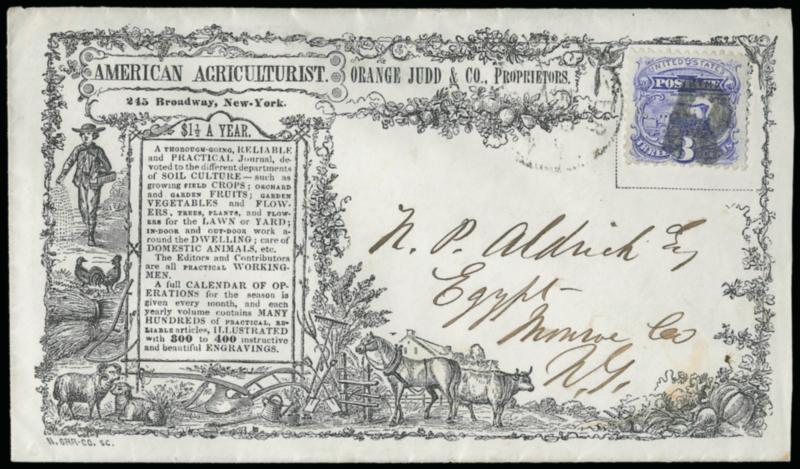 AMERICAN AGRICULTURIST.
ORANGE JUDD & CO., PROPRIETORS.
245 Broadway, New-York.
$1½ A YEAR.
A THOROUGH-GOING, RELIABLE
and PRACTICAL Journal, de-
voted to the different departments
of SOIL CULTURE—such as
growing FIELD CROPS; ORCHARD
and GARDEN FRUITS; GARDEN
VEGETABLES and FLOW-
ERS, TREES, PLANTS, and FLOW-
ERS for the LAWN or YARD;
IN-DOOR and OUT-DOOR work a-
round the DWELLING; care of
DOMESTIC ANIMALS, etc.
The Editors and Contributors
are all PRACTICAL WORKING-
MEN.
A full CALENDAR OF OP-
ERATIONS for the season is
given every month, and each
yearly volume contains MANY
HUNDREDS of PRACTICAL, RE-
LIABLE articles, ILLUSTRATED
with 300 to 400 instructive
and beautiful ENGRAVINGS.
N. ORR-CO. SC.
UNITED STATES
POSTAGE
THREE
3
N. P. Aldrich Esq
Egypt
Monroe Co
N.Y.